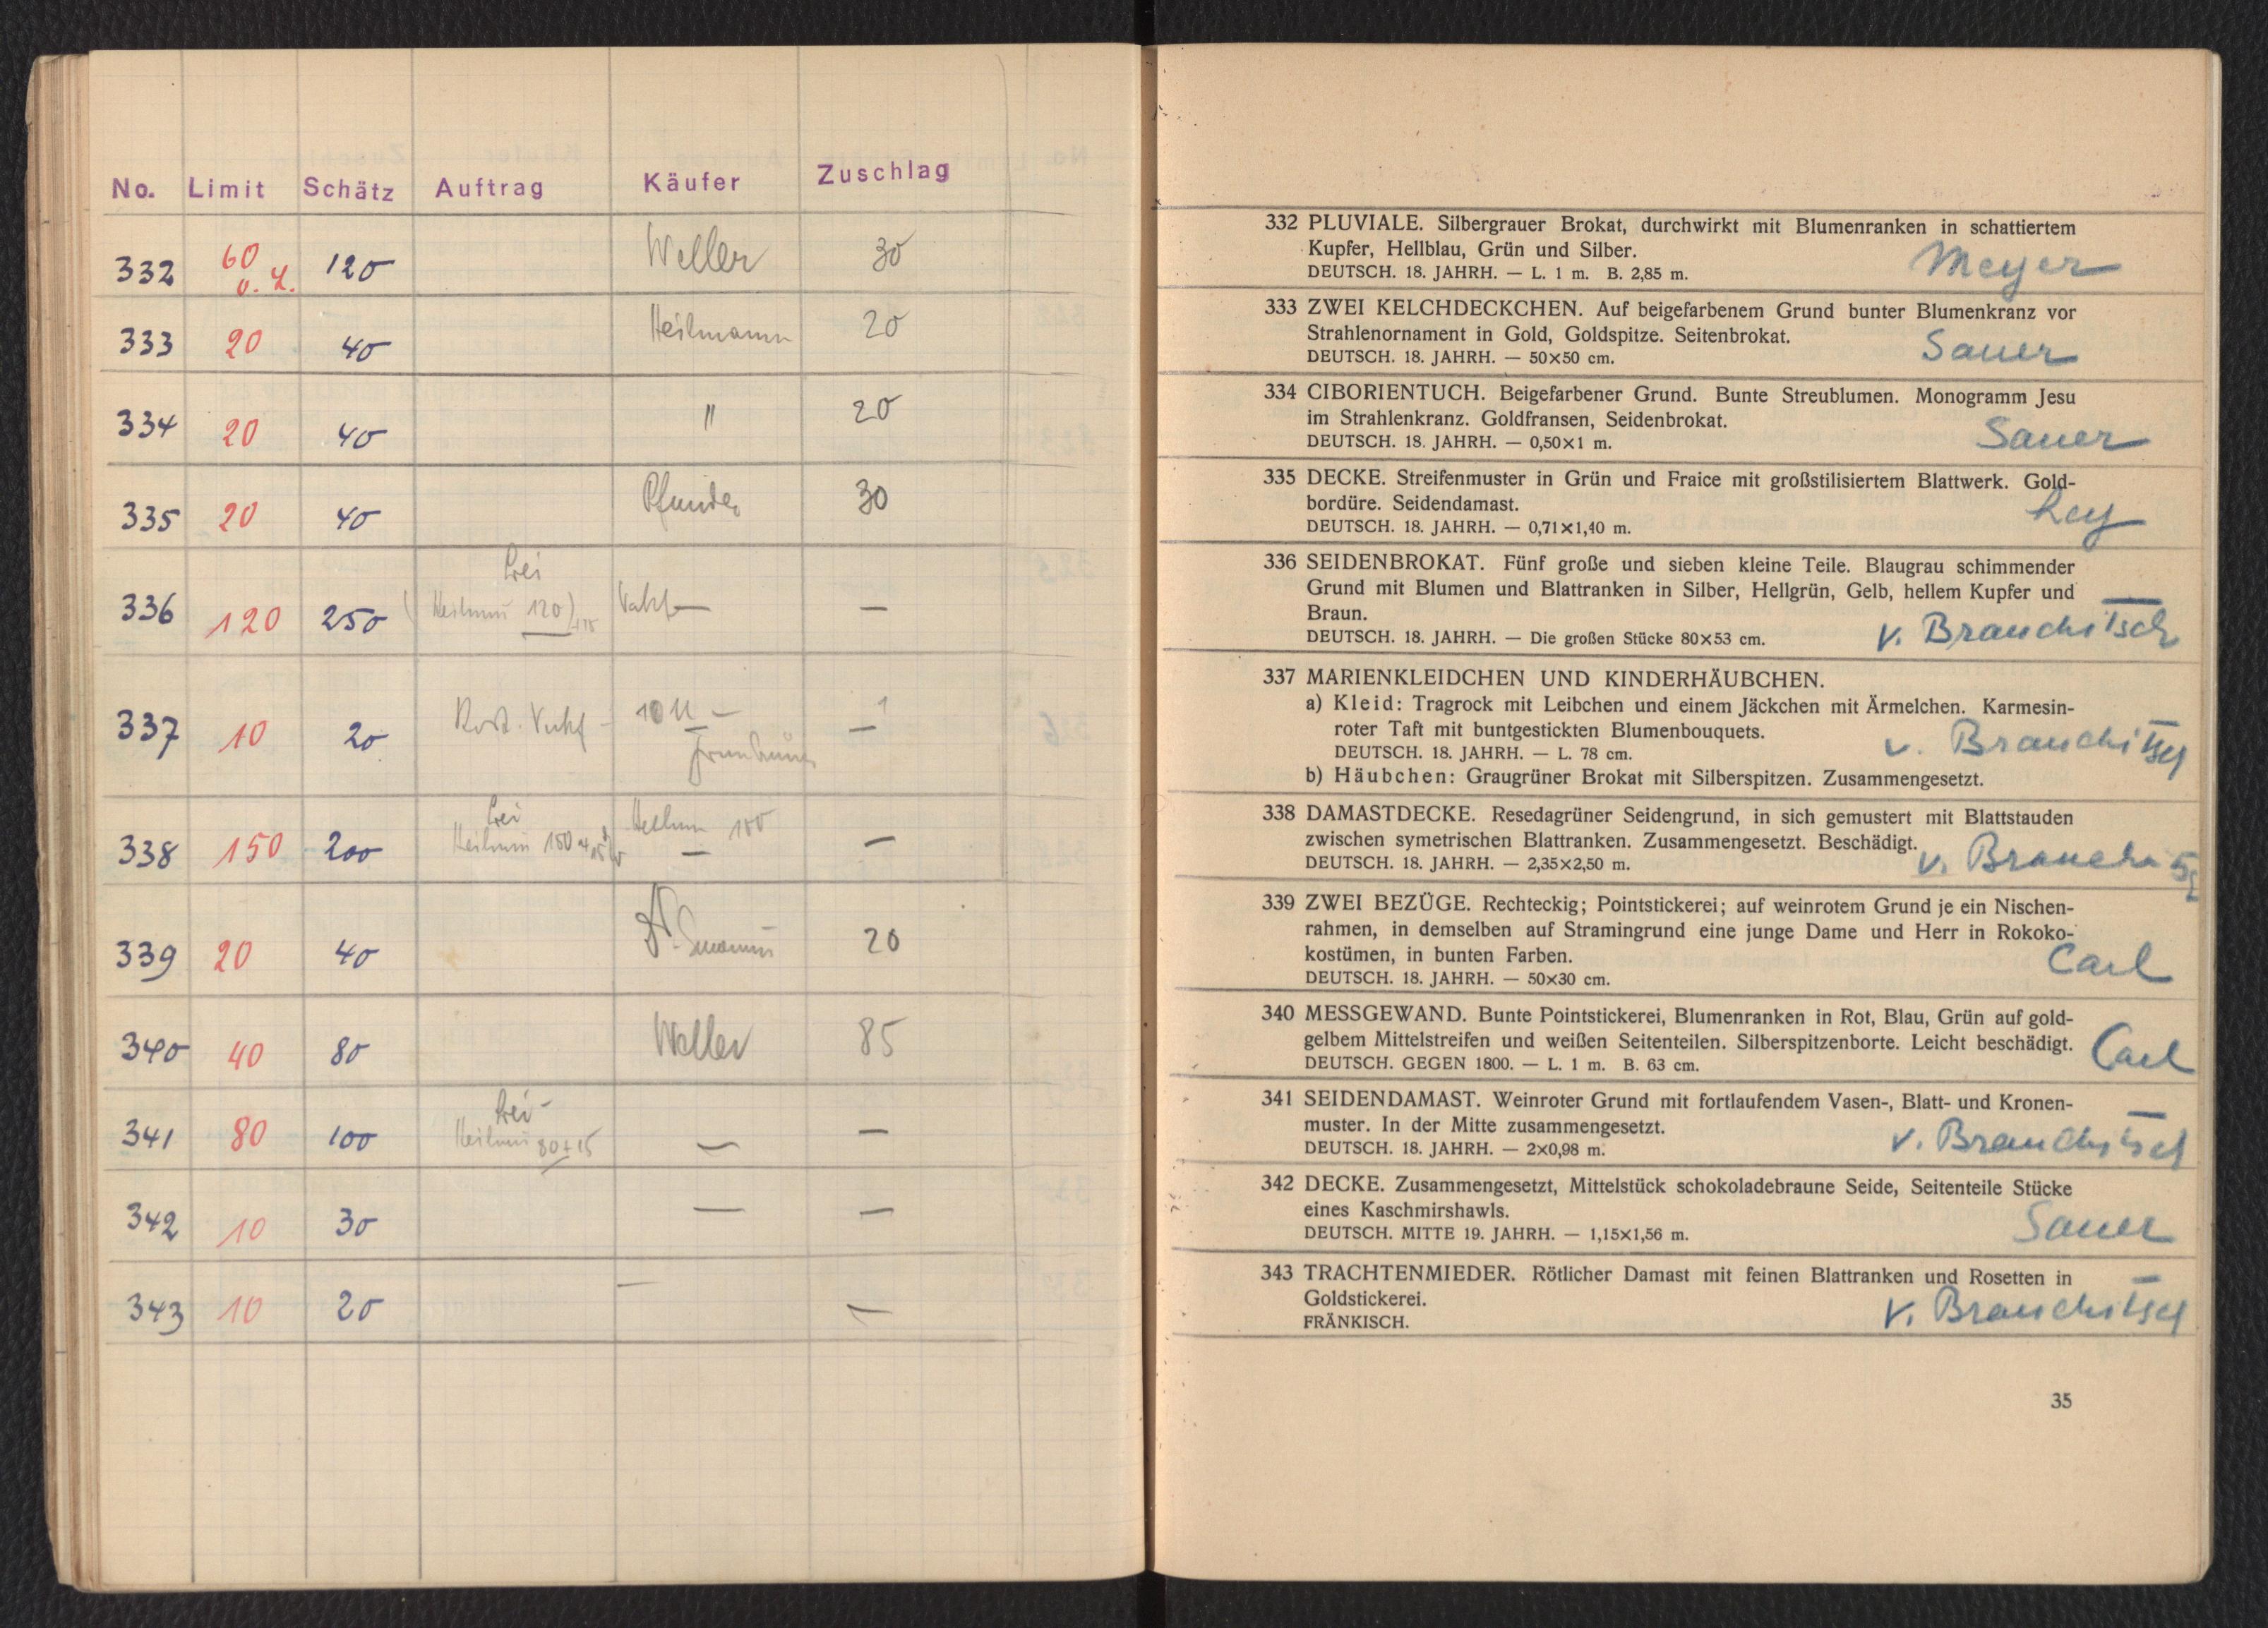 No. Limit Schätz Auftrag Käufer Zuschlag
332 60 120 Weller 30
333 20 40 Heilmann 20
334 20 40 " 20
335 20 40 30
336 120 250 120 —
337 10 20 —
338 150 200 150 —
339 20 40 20
340 40 80 Weller 85
341 80 100 80 + 15 — —
342 10 30 — —
343 10 20 — —
332 PLUVIALE. Silbergrauer Brokat, durchwirkt mit Blumenranken in schattiertem
Kupfer, Hellblau, Grün und Silber.
DEUTSCH. 18. JAHRH. — L. 1 m. B. 2,85 m.
Meyer
333 ZWEI KELCHDECKCHEN. Auf beigefarbenem Grund bunter Blumenkranz vor
Strahlenornament in Gold, Goldspitze. Seitenbrokat.
DEUTSCH. 18. JAHRH. — 50×50 cm.
Sauer
334 CIBORIENTUCH. Beigefarbener Grund. Bunte Streublumen. Monogramm Jesu
im Strahlenkranz. Goldfransen, Seidenbrokat.
DEUTSCH. 18. JAHRH. — 0,50×1 m.
Sauer
335 DECKE. Streifenmuster in Grün und Fraice mit großstilisiertem Blattwerk. Gold-
bordüre. Seidendamast.
DEUTSCH. 18. JAHRH. — 0,71×1,40 m.
Ley
336 SEIDENBROKAT. Fünf große und sieben kleine Teile. Blaugrau schimmender
Grund mit Blumen und Blattranken in Silber, Hellgrün, Gelb, hellem Kupfer und
Braun.
DEUTSCH. 18. JAHRH. — Die großen Stücke 80×53 cm.
v. Brauchitsch
337 MARIENKLEIDCHEN UND KINDERHÄUBCHEN.
a) Kleid: Tragrock mit Leibchen und einem Jäckchen mit Ärmelchen. Karmesin-
roter Taft mit buntgestickten Blumenbouquets.
DEUTSCH. 18. JAHRH. — L. 78 cm.
v. Brauchitsch
b) Häubchen: Graugrüner Brokat mit Silberspitzen. Zusammengesetzt.
338 DAMASTDECKE. Resedagrüner Seidengrund, in sich gemustert mit Blattstauden
zwischen symetrischen Blattranken. Zusammengesetzt. Beschädigt.
DEUTSCH. 18. JAHRH. — 2,35×2,50 m.
v.
339 ZWEI BEZÜGE. Rechteckig; Pointstickerei; auf weinrotem Grund je ein Nischen-
rahmen, in demselben auf Stramingrund eine junge Dame und Herr in Rokoko-
kostümen, in bunten Farben.
DEUTSCH. 18. JAHRH. — 50×30 cm.
Carl
340 MESSGEWAND. Bunte Pointstickerei, Blumenranken in Rot, Blau, Grün auf gold-
gelbem Mittelstreifen und weißen Seitenteilen. Silberspitzenborte. Leicht beschädigt.
DEUTSCH. GEGEN 1800. — L. 1 m. B. 63 cm.
Carl
341 SEIDENDAMAST. Weinroter Grund mit fortlaufendem Vasen-, Blatt- und Kronen-
muster. In der Mitte zusammengesetzt.
DEUTSCH. 18. JAHRH. — 2×0,98 m.
v. Brauchitsch
342 DECKE. Zusammengesetzt, Mittelstück schokoladebraune Seide, Seitenteile Stücke
eines Kaschmirshawls.
DEUTSCH. MITTE 19. JAHRH. — 1,15×1,56 m.
Sauer
343 TRACHTENMIEDER. Rötlicher Damast mit feinen Blattranken und Rosetten in
Goldstickerei.
FRÄNKISCH.
v. Brauchitsch
35